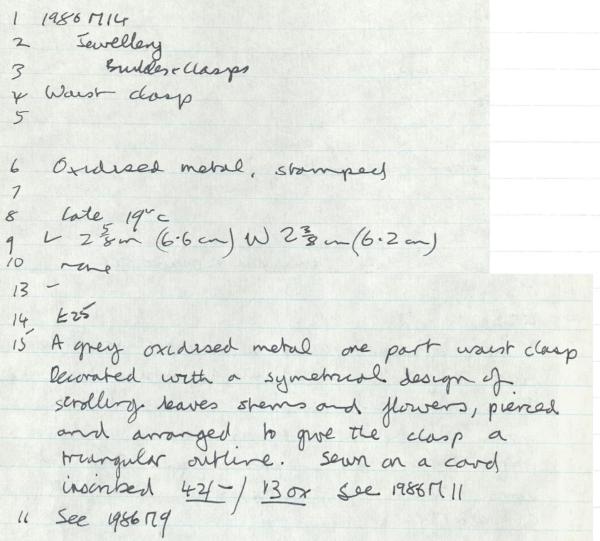 1 1986 M14
2 Jewellery
3 Buckles + clasps
4 Waist clasp
5
6 Oxidised metal, stamped
7
8 Late 19th c
9 L 2 5/8 in (6.6 cm) W 2 3/8 in (6.2 cm)
10 none
13 -
14 £25
15 A grey oxidised metal one part waist clasp
Decorated with a symetrical design of
scrolling leaves stems and flowers, pierced
and arranged to give the clasp a
triangular outline. Sewn on a card
inscribed 42/- / 13 ox See 1986 M11
11 See 1986 M9